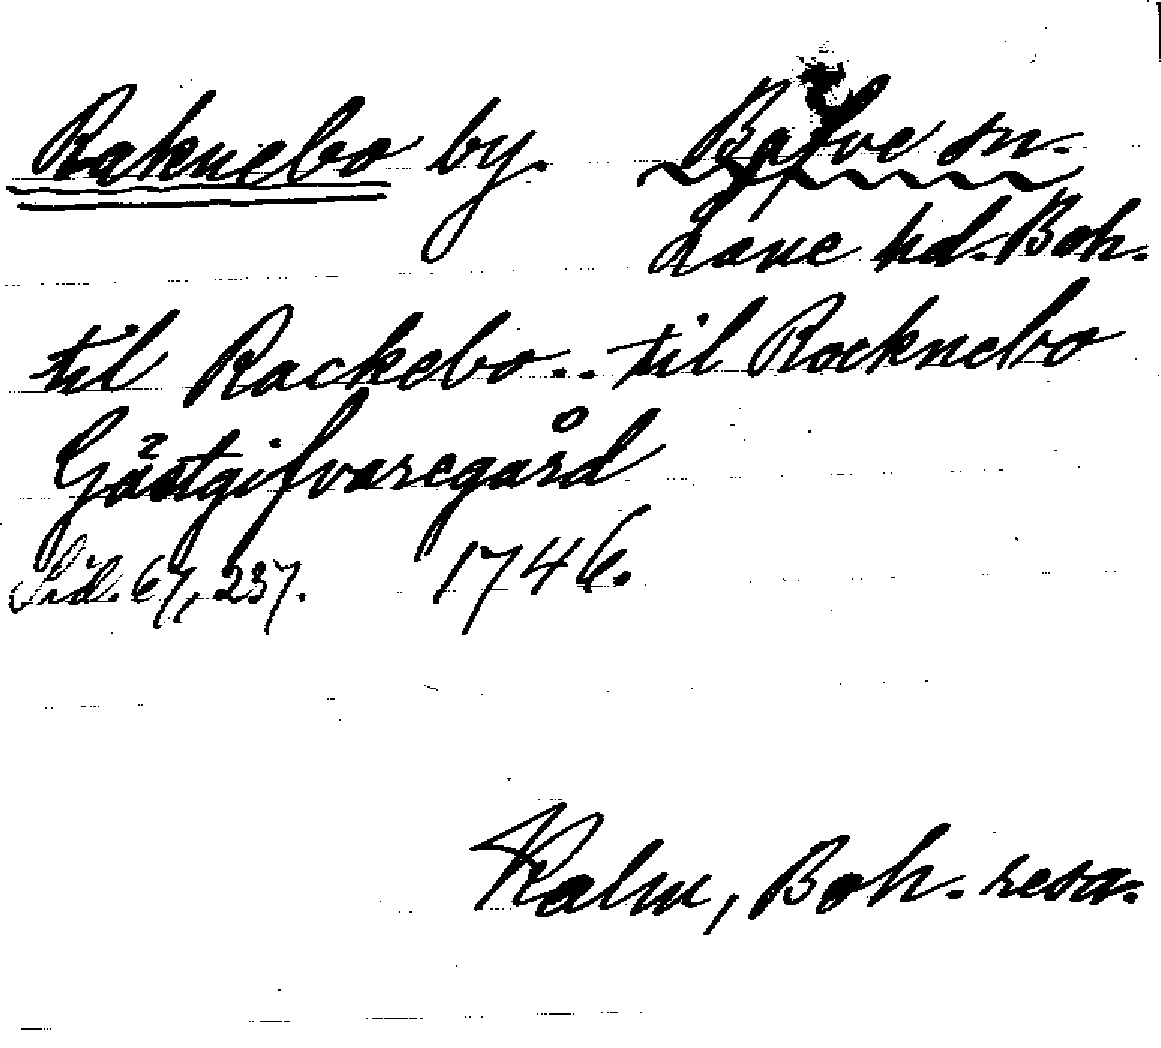 Raknebo by. Bäfve sn.
Lane hd. Boh.
til Rackebo.. til Rocknebo
Gästgifvaregård
Sid. 67, 237. 1746.
Kalm, Boh. resa.